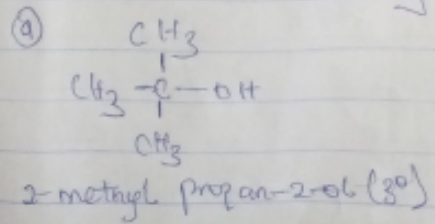 (a)
CH3
CH3 -C- OH
CH3
2-methyl propan-2-ol (3°)